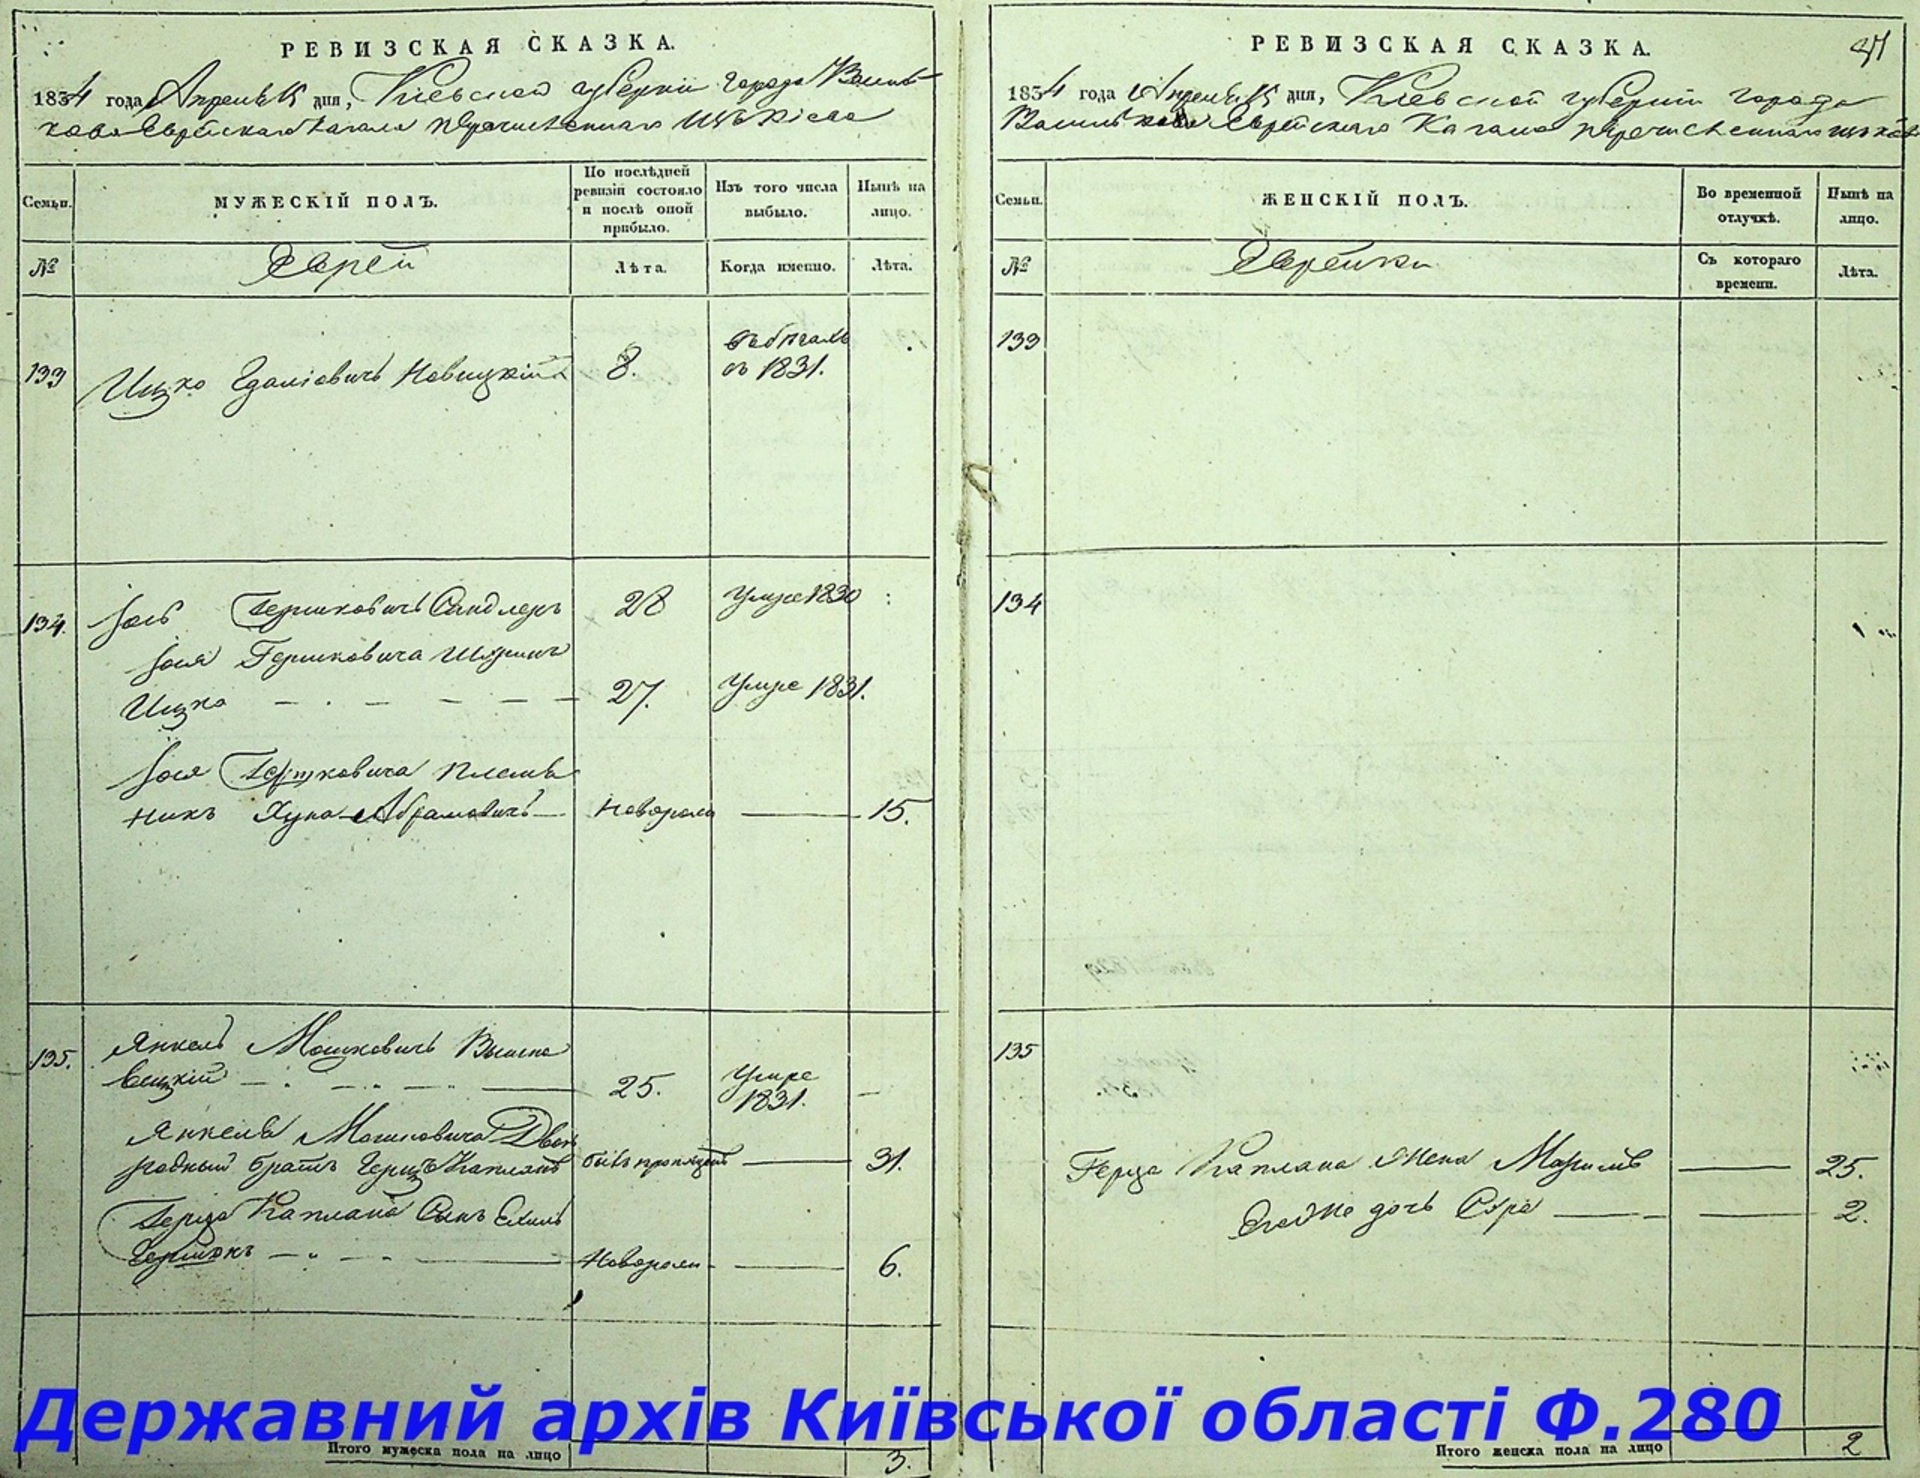 РЕВИЗСКАЯ СКАЗКА.
1834 года Апреля 15 дня, Кіевской губерніи города Василь-
кова Еврейскаго Кагала перечисленнаго изъ Кіева
Семьи.
МУЖЕСКІЙ ПОЛЪ.
По послѣдней
ревизіи состояло
и послѣ оной
прибыло.
Изъ того числа
выбыло.
Нынѣ на
лицо.
№
Еврей
Лѣта.
Когда именно.
Лѣта.
133
Ицко Гдаліовичъ Новицкій
8.
въ 1831.
134.
Іось Гершковичъ Сандлеръ
28
Умре 1830
Іося Гершковича Шуринъ
Ицко
27.
Умре 1831.
Іося Гершковича племя
никъ Хуна Абрамовичъ
Новорож
15.
135.
Янкель Мошковичъ Вишне
вецкій
25.
Умре
1831.
Янкеля Мошковича Двою
родный братъ Герцъ Капланъ
былъ пропущенъ
31.
Герца Каплана Сынъ Ехиль
Гершонъ
Новорож
6.
Итого мужеска пола на лицо
3.
РЕВИЗСКАЯ СКАЗКА.
1834 года Апреля 15 дня, Кіевской губерніи города
Василькова Еврейскаго Кагала перечисленнаго изъ
Семьи.
ЖЕНСКІЙ ПОЛЪ.
Во временной
отлучкѣ.
Нынѣ на
лицо.
№
Еврейки
Съ котораго
времени.
Лѣта.
133
134
135
Герца Каплана жена Маріимъ
25.
дочь Сура
2.
Итого женска пола на лицо
2
Державний архів Київської області Ф.280